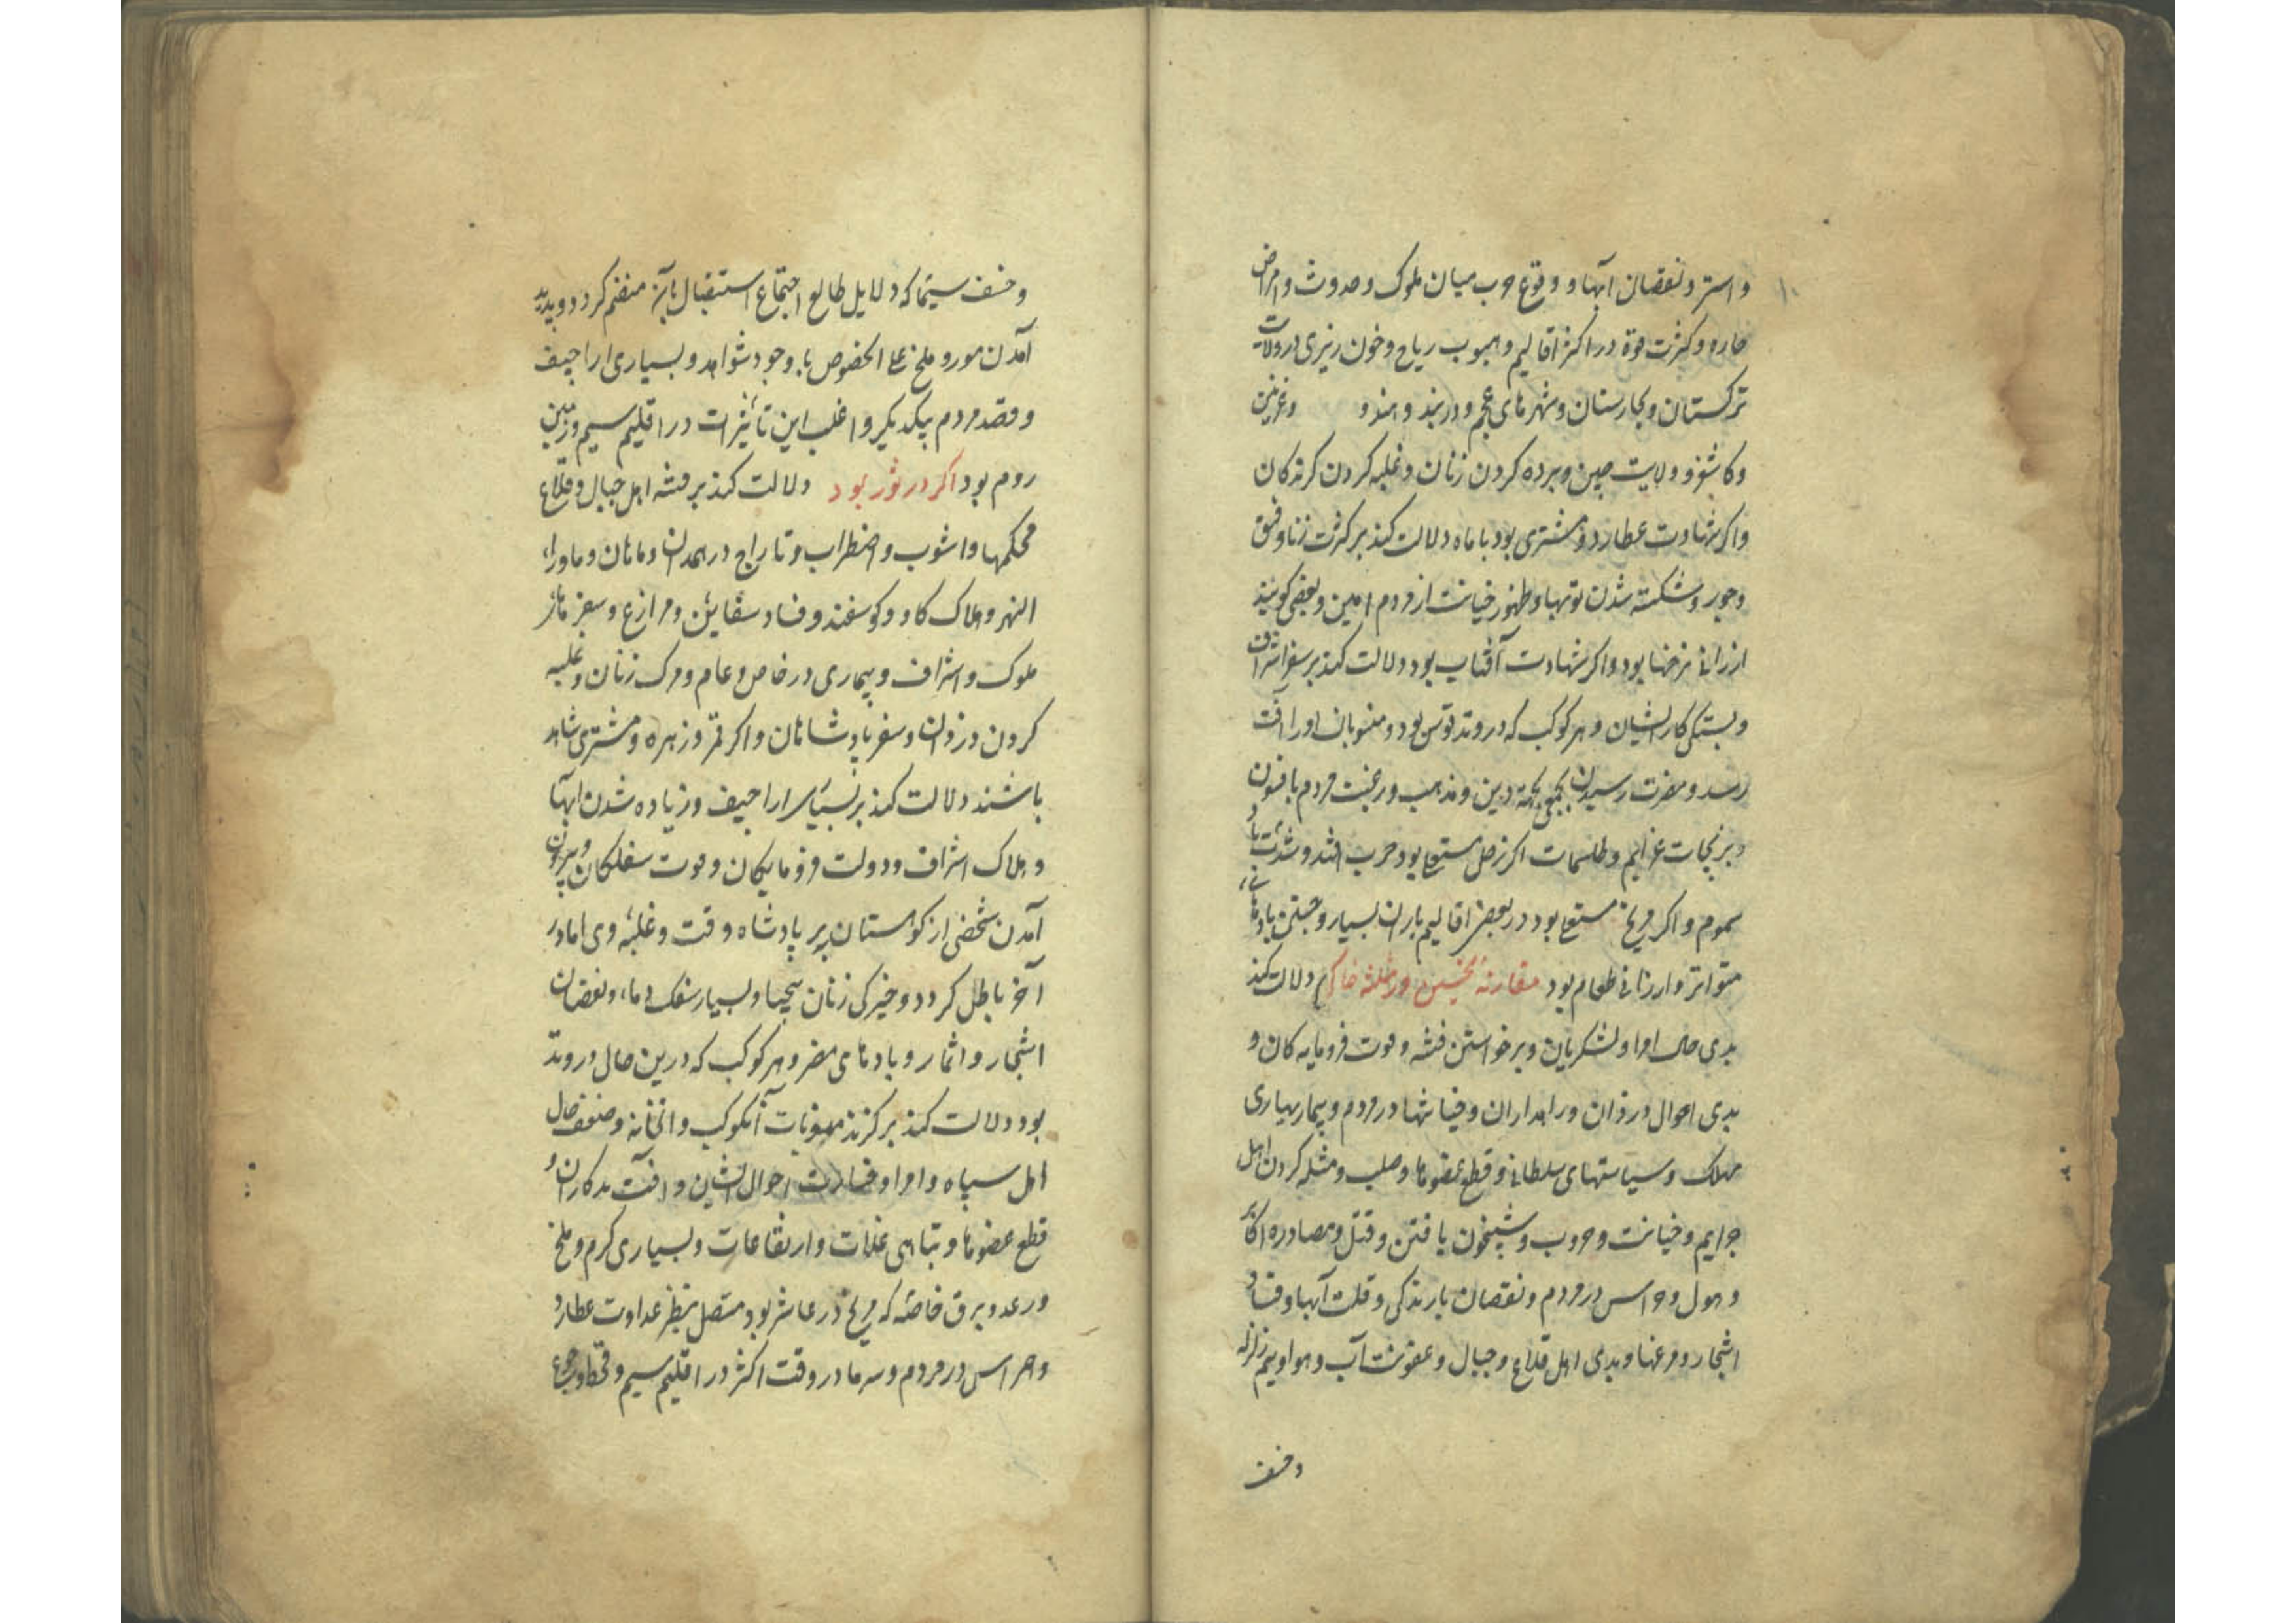 واستر و نقصان آبها و وقوع حرب میان ملوک و حدوث و امراض
حاره و کثرت موة در اکثر اقالیم و هبوب ریاح و خون ریزی در ولایت
ترکستان و بخارستان و شهرهای عجم و دربند و هند و و غزنین
و کاشغر و ولایت چین و برده کردن زنان و غلبه کردن کرندکان
واکر شهادت عطارد و مشتری بود با ماه دلالت کند بر کثرت زنا و فسق
و جور و شکسته شدن توبها و ظهور خیانت از مردم امین و بعضی کویند
ارزانی نرخها بود واکر شهادت آفتاب بود دلالت کند بر سفر اشراف
و بستکی کار ایشان و هر کوکب که در وتد قوس بود و منسوبان اورا آفت
رسد و مضرت رسیدن بجمعی بجهة دین و مذهب و رغبت مردم بافسون
و نیرنجات عزایم و طلسمات اکر زحل مستعلی بود حرب افتد و شدت باد
سموم و اکر مریخ مستعلی بود در بعضی اقالیم باران بسیار و جستن بادهای
متواتر و ارزانی طعام بود مقارنهٔ نحسین در مثلثه خاکی دلالت کند
بدی حال امرا و لشکریان و برخواستن فتنه و موت فرومایه کان و
بدی احوال دزدان و راهداران و خیانتها در مردم و بیماریهای
مهلک و سیاستهای سلطانی و قطع عضوها و صلب و مثله کردن اهل
جرایم و خیانت و حروب و شبیخون یافتن و قتل و مصادره اکابر
و هول و هراس در مردم و نقصان بارندکی و قلت آبها و فساد
اشجار و مرغها و بدی اهل قلاع و جبال و عفونت آب و هوا و بیم زلزله
و خسف
و خسف سیما که دلایل طالع اجتماع استقبال بآن منضم کردد و پدید
آمدن مور و ملخ علی الخصوص با وجود شواهد و بسیاری اراجیف
و قصد مردم بیکدیکر و اغلب این تأثیرات در اقلیم سیم و زمین
روم بود اکر در ثور بود دلالت کند بر فتنه اهل جبال و قلاع
محکمها و اشوب و اضطراب و تاراج در همدان و ماهان و ماوراء
النهر و هلاک کاو و کوسفند و فساد سفاین و مزارع و سفرهای
ملوک و اشراف و بیماری در خاص و عام و مرک زنان و غلبه
کردن دزدان و سفر بادشاهان و اکر قمر و زهره و مشتری شاهد
باشند دلالت کند بر بسیاری اراجیف و زیاده شدن آبها
و هلاک اشراف و دولت فرومایکان و موت سفلکان و بیرون
آمدن شخصی از کوهستان بر پادشاه وقت و غلبهٔ وی اما در
آخر باطل کردد و خیرکی زنان بیحیا و بسیار سفک دماء و نقصان
اشجار و اثمار و بادهای مضر و هر کوکب که درین حال در وتد
بود دلالت کند بر کزند منسوبات آنکوکب و انخانه و ضعف حال
اهل سپاه و امرا و خسارت احوال ایشان و آفت بدکاران و
قطع عضوها و تباهی غلات و ارتفاعات و بسیاری کرم و ملخ
و رعد و برق خاصه که مریخ در عاشر بود متصل بنظر عداوت عطارد
و هراس در مردم و سرما در وقت اکثر در اقلیم سیم و قحط و جوع